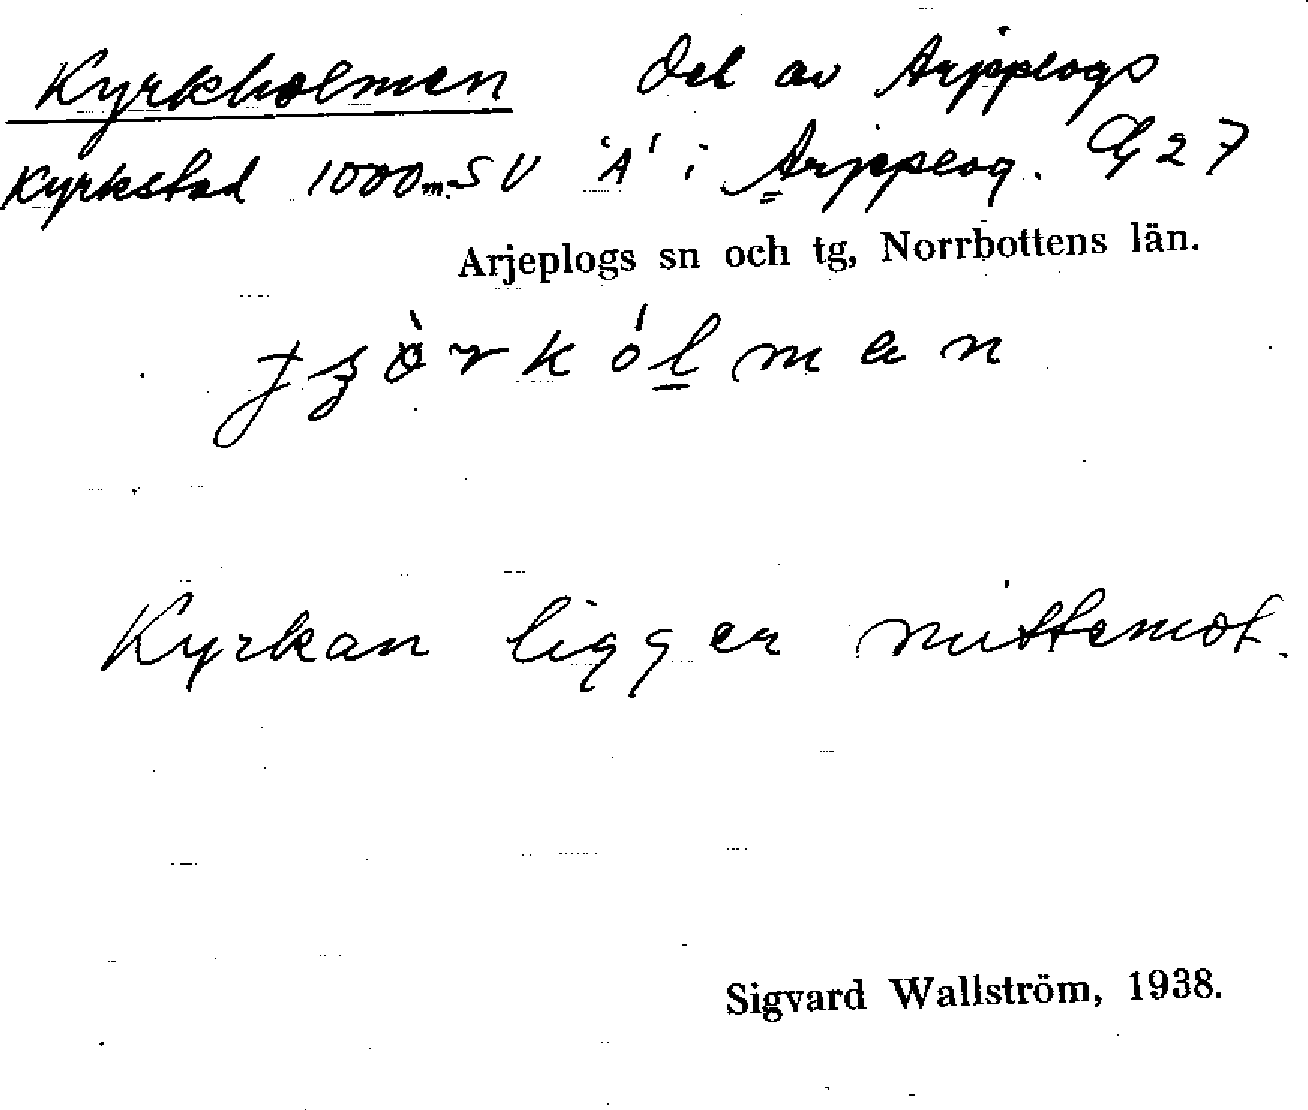 Kyrkholmen del av Arjeplogs
Kyrkstad 1000 m SV 'A' i Arjeplog. G 27
Arjeplogs sn och tg, Norrbottens län.
Kyrkan ligger mittemot.
Sigvard Wallström, 1938.